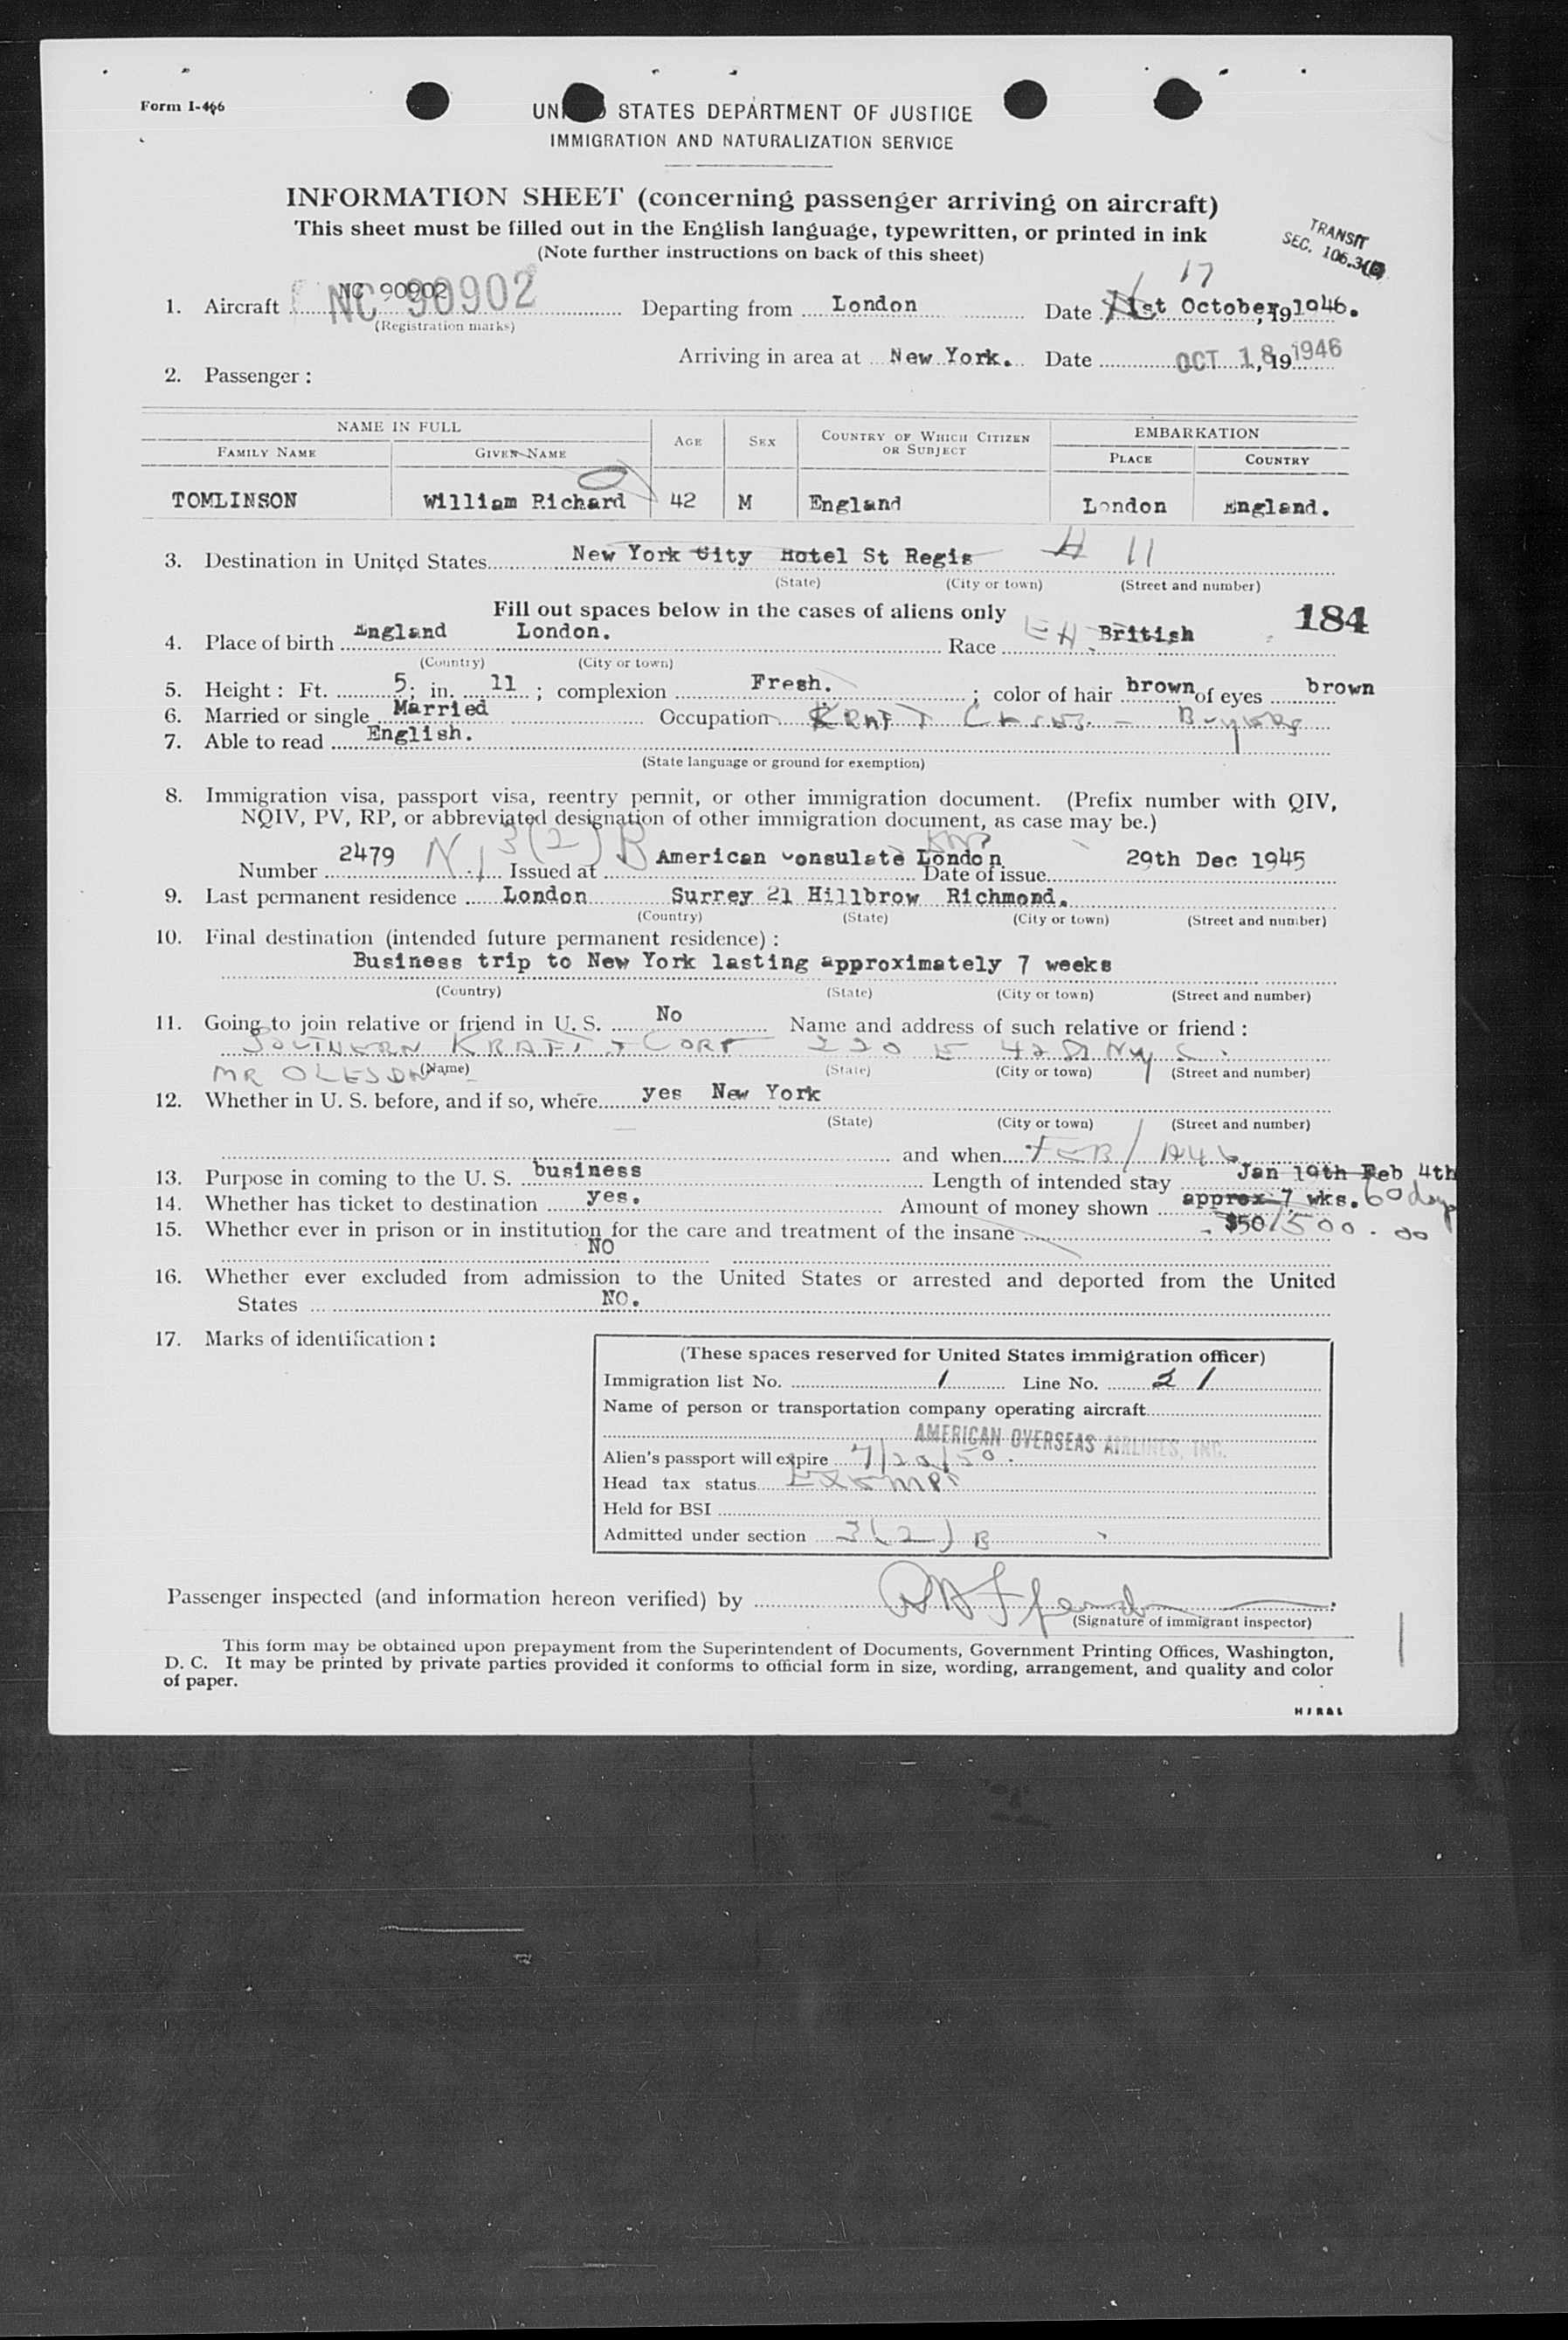 Form I-466
UNITED STATES DEPARTMENT OF JUSTICE
IMMIGRATION AND NATURALIZATION SERVICE
INFORMATION SHEET (concerning passenger arriving on aircraft)
This sheet must be filled out in the English language, typewritten, or printed in ink
(Note further instructions on back of this sheet)
TRANSIT
SEC. 106.3
17
1. Aircraft NC 90902 NC 90902 Departing from London Date 1st October, 19 1946.
(Registration marks)
Arriving in area at New York. Date OCT 18, 19 1946
2. Passenger:
NAME IN FULL AGE SEX COUNTRY OF WHICH CITIZEN OR SUBJECT EMBARKATION
FAMILY NAME GIVEN NAME PLACE COUNTRY
TOMLINSON William Richard 42 M England London England.
3. Destination in United States New York City Hotel St Regis H 11
(State) (City or town) (Street and number)
Fill out spaces below in the cases of aliens only
184
4. Place of birth England London. Race British
(Country) (City or town)
5. Height: Ft. 5; in. 11; complexion Fresh.; color of hair brown of eyes brown
6. Married or single Married Occupation KRAFT Buyers
7. Able to read English.
(State language or ground for exemption)
8. Immigration visa, passport visa, reentry permit, or other immigration document. (Prefix number with QIV,
NQIV, PV, RP, or abbreviated designation of other immigration document, as case may be.)
3(2) B
Number 2479 Issued at American Consulate London Date of issue 29th Dec 1945
9. Last permanent residence London Surrey 21 Hillbrow Richmond.
(Country) (State) (City or town) (Street and number)
10. Final destination (intended future permanent residence):
Business trip to New York lasting approximately 7 weeks
(Country) (State) (City or town) (Street and number)
11. Going to join relative or friend in U. S. No Name and address of such relative or friend:
SOUTHERN KRAFT CORP 220 E 42 St NYC.
MR OLESON (Name) (State) (City or town) (Street and number)
12. Whether in U. S. before, and if so, where yes New York
(State) (City or town) (Street and number)
and when FEB/1946
Jan 19th Feb 4th
13. Purpose in coming to the U. S. business Length of intended stay approx 7 wks. 60 days
14. Whether has ticket to destination yes. Amount of money shown $50 500.00
15. Whether ever in prison or in institution for the care and treatment of the insane
NO
16. Whether ever excluded from admission to the United States or arrested and deported from the United
States NO.
17. Marks of identification:
(These spaces reserved for United States immigration officer)
Immigration list No. 1 Line No. 21
Name of person or transportation company operating aircraft
AMERICAN OVERSEAS AIRLINES, INC.
Alien's passport will expire 7/20/50.
Head tax status Exempt
Held for BSI
Admitted under section 3(2) B
Passenger inspected (and information hereon verified) by
(Signature of immigrant inspector)
This form may be obtained upon prepayment from the Superintendent of Documents, Government Printing Offices, Washington,
D. C. It may be printed by private parties provided it conforms to official form in size, wording, arrangement, and quality and color
of paper.